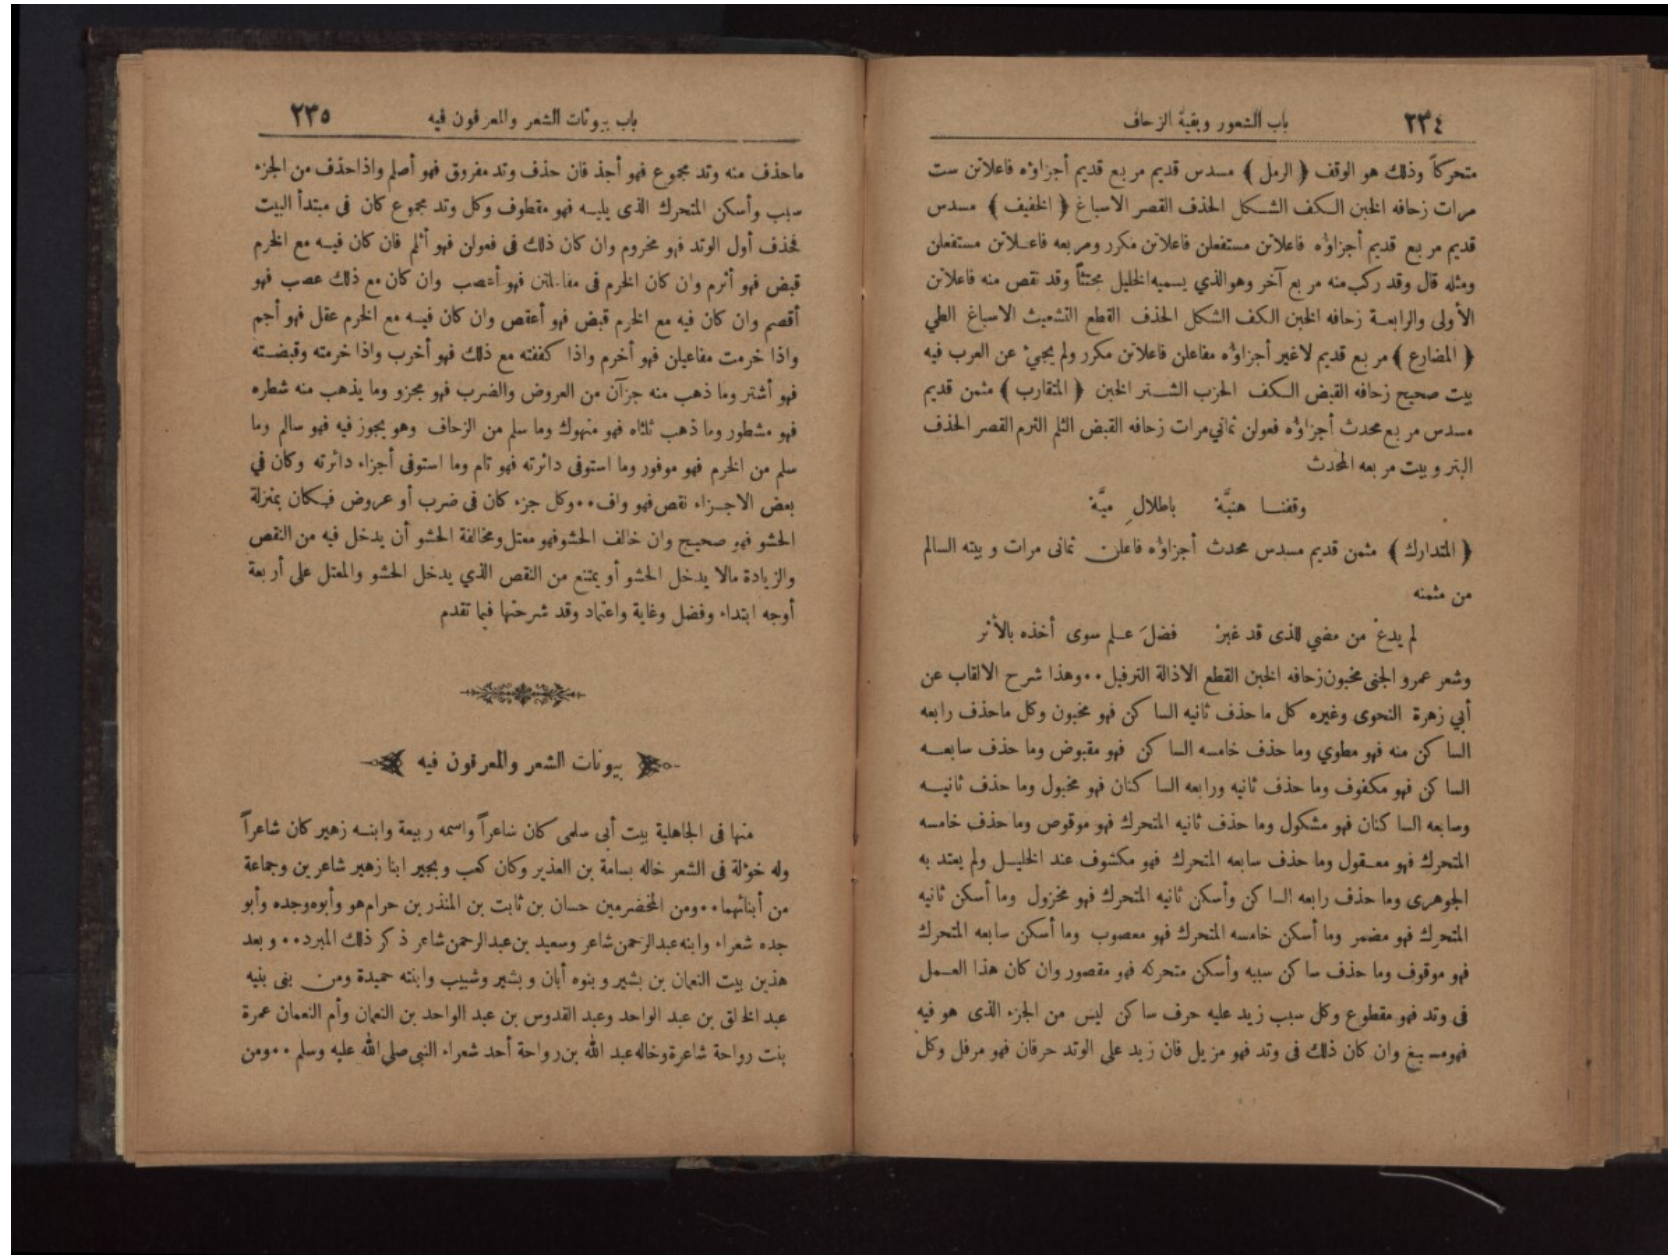 ٢٣٤ باب الشعور وبقية الزحاف
متحركاً وذلك هو الوقف ﴿ الرمل ﴾ مسدس قديم مربع قديم أجزاؤه فاعلاتن ست
مرات زحافه الخبن الكف الشكل الحذف القصر الاسباغ ﴿ الخفيف ﴾ مسدس
قديم مربع قديم أجزاؤه فاعلاتن مستفعلن فاعلاتن مكرر ومربعه فاعلاتن مستفعلن
ومثله قال وقد ركب منه مربع آخر وهو الذي يسميه الخليل مجتثاً وقد نقص منه فاعلاتن
الأولى والرابعة زحافه الخبن الكف الشكل الحذف القطع التشعيث الاسباغ الطي
﴿ المضارع ﴾ مربع قديم لاغير أجزاؤه مفاعلن فاعلاتن مكرر ولم يجيء عن العرب فيه
بيت صحيح زحافه القبض الكف الخرب الشتر الخبن ﴿ المتقارب ﴾ مثمن قديم
مسدس مربع محدث أجزاؤه فعولن ثماني مرات زحافه القبض الثلم الثرم القصر الحذف
البتر وبيت مربعه المحدث
وقفنا هنيَّهْ باطلالِ ميَّهْ
﴿ المتدارك ﴾ مثمن قديم مسدس محدث أجزاؤه فاعلن ثمانى مرات وبيته السالم
من مثمنه
لم يدعْ من مضي للذى قد غبرْ فضلَ علم سوى أخذه بالأثر
وشعر عمرو الجنى مخبون زحافه الخبن القطع الاذالة الترفيل٠٠وهذا شرح الالقاب عن
أبي زهرة النحوى وغيره كل ما حذف ثانيه الساكن فهو مخبون وكل ماحذف رابعه
الساكن منه فهو مطوي وما حذف خامسه الساكن فهو مقبوض وما حذف سابعه
الساكن فهو مكفوف وما حذف ثانيه ورابعه الساكنان فهو مخبول وما حذف ثانيه
وسابعه الساكنان فهو مشكول وما حذف ثانيه المتحرك فهو موقوص وما حذف خامسه
المتحرك فهو معقول وما حذف سابعه المتحرك فهو مكشوف عند الخليل ولم يعتد به
الجوهرى وما حذف رابعه الساكن وأسكن ثانيه المتحرك فهو مخزول وما أسكن ثانيه
المتحرك فهو مضمر وما أسكن خامسه المتحرك فهو معصوب وما أسكن سابعه المتحرك
فهو موقوف وما حذف ساكن سببه وأسكن متحركه فهو مقصور وان كان هذا العمل
فى وتد فهو مقطوع وكل سبب زيد عليه حرف ساكن ليس من الجزء الذى هو فيه
فهو مسبغ وان كان ذلك فى وتد فهو مزيل فان زيد على الوتد حرفان فهو مرفل وكل
باب بيوتات الشعر والمعرقون فيه ٢٣٥
ماحذف منه وتد مجموع فهو أجذ فان حذف وتد مفروق فهو أصلم واذا حذف من الجزء
سبب وأسكن المتحرك الذى يليه فهو مقطوف وكل وتد مجموع كان فى مبتدأ البيت
فحذف أول الوتد فهو مخروم وان كان ذلك فى فعولن فهو أثلم فان كان فيه مع الخرم
قبض فهو أثرم وان كان الخرم فى مفاعلتن فهو أعضب وان كان مع ذلك عصب فهو
أقصم وان كان فيه مع الخرم قبض فهو أعقص وان كان فيه مع الخرم عقل فهو أجم
واذا خرمت مفاعيلن فهو أخرم واذا كففته مع ذلك فهو أخرب واذا خرمته وقبضته
فهو أشتر وما ذهب منه جزآن من العروض والضرب فهو مجزو وما يذهب منه شطره
فهو مشطور وما ذهب ثلثاه فهو منهوك وما سلم من الزحاف وهو يجوز فيه فهو سالم وما
سلم من الخرم فهو موفور وما استوفى دائرته فهو تام وما استوفى أجزاء دائرته وكان في
بعض الاجزاء نقص فهو واف٠٠وكل جزء كان فى ضرب أو عروض فكان بمنزلة
الحشو فهو صحيح وان خالف الحشو فهو معتل ومخالفة الحشو أن يدخل فيه من النقص
والزيادة مالا يدخل الحشو أو يمتنع من النقص الذي يدخل الحشو والمعتل على أربعة
أوجه ابتداء وفضل وغاية واعتماد وقد شرحتها فيما تقدم
بيوتات الشعر والمعرقون فيه
منها فى الجاهلية بيت أبى سلمى كان شاعراً واسمه ربيعة وابنه زهير كان شاعراً
وله خؤلة فى الشعر خاله بسامة بن الغدير وكان كعب وبجير ابنا زهير شاعرين وجماعة
من أبنائهما٠٠ومن المخضرمين حسان بن ثابت بن المنذر بن حرام هو وأبوه وجده وأبو
جده شعراء وابنه عبد الرحمن شاعر وسعيد بن عبد الرحمن شاعر ذكر ذلك المبرد٠٠وبعد
هذين بيت النعمان بن بشير وبنوه أبان وبشير وشبيب وابنته حميدة ومن بنى بنيه
عبد الخالق بن عبد الواحد وعبد القدوس بن عبد الواحد بن النعمان وأم النعمان عمرة
بنت رواحة شاعرة وخاله عبد الله بن رواحة أحد شعراء النبى صلى الله عليه وسلم٠٠ومن